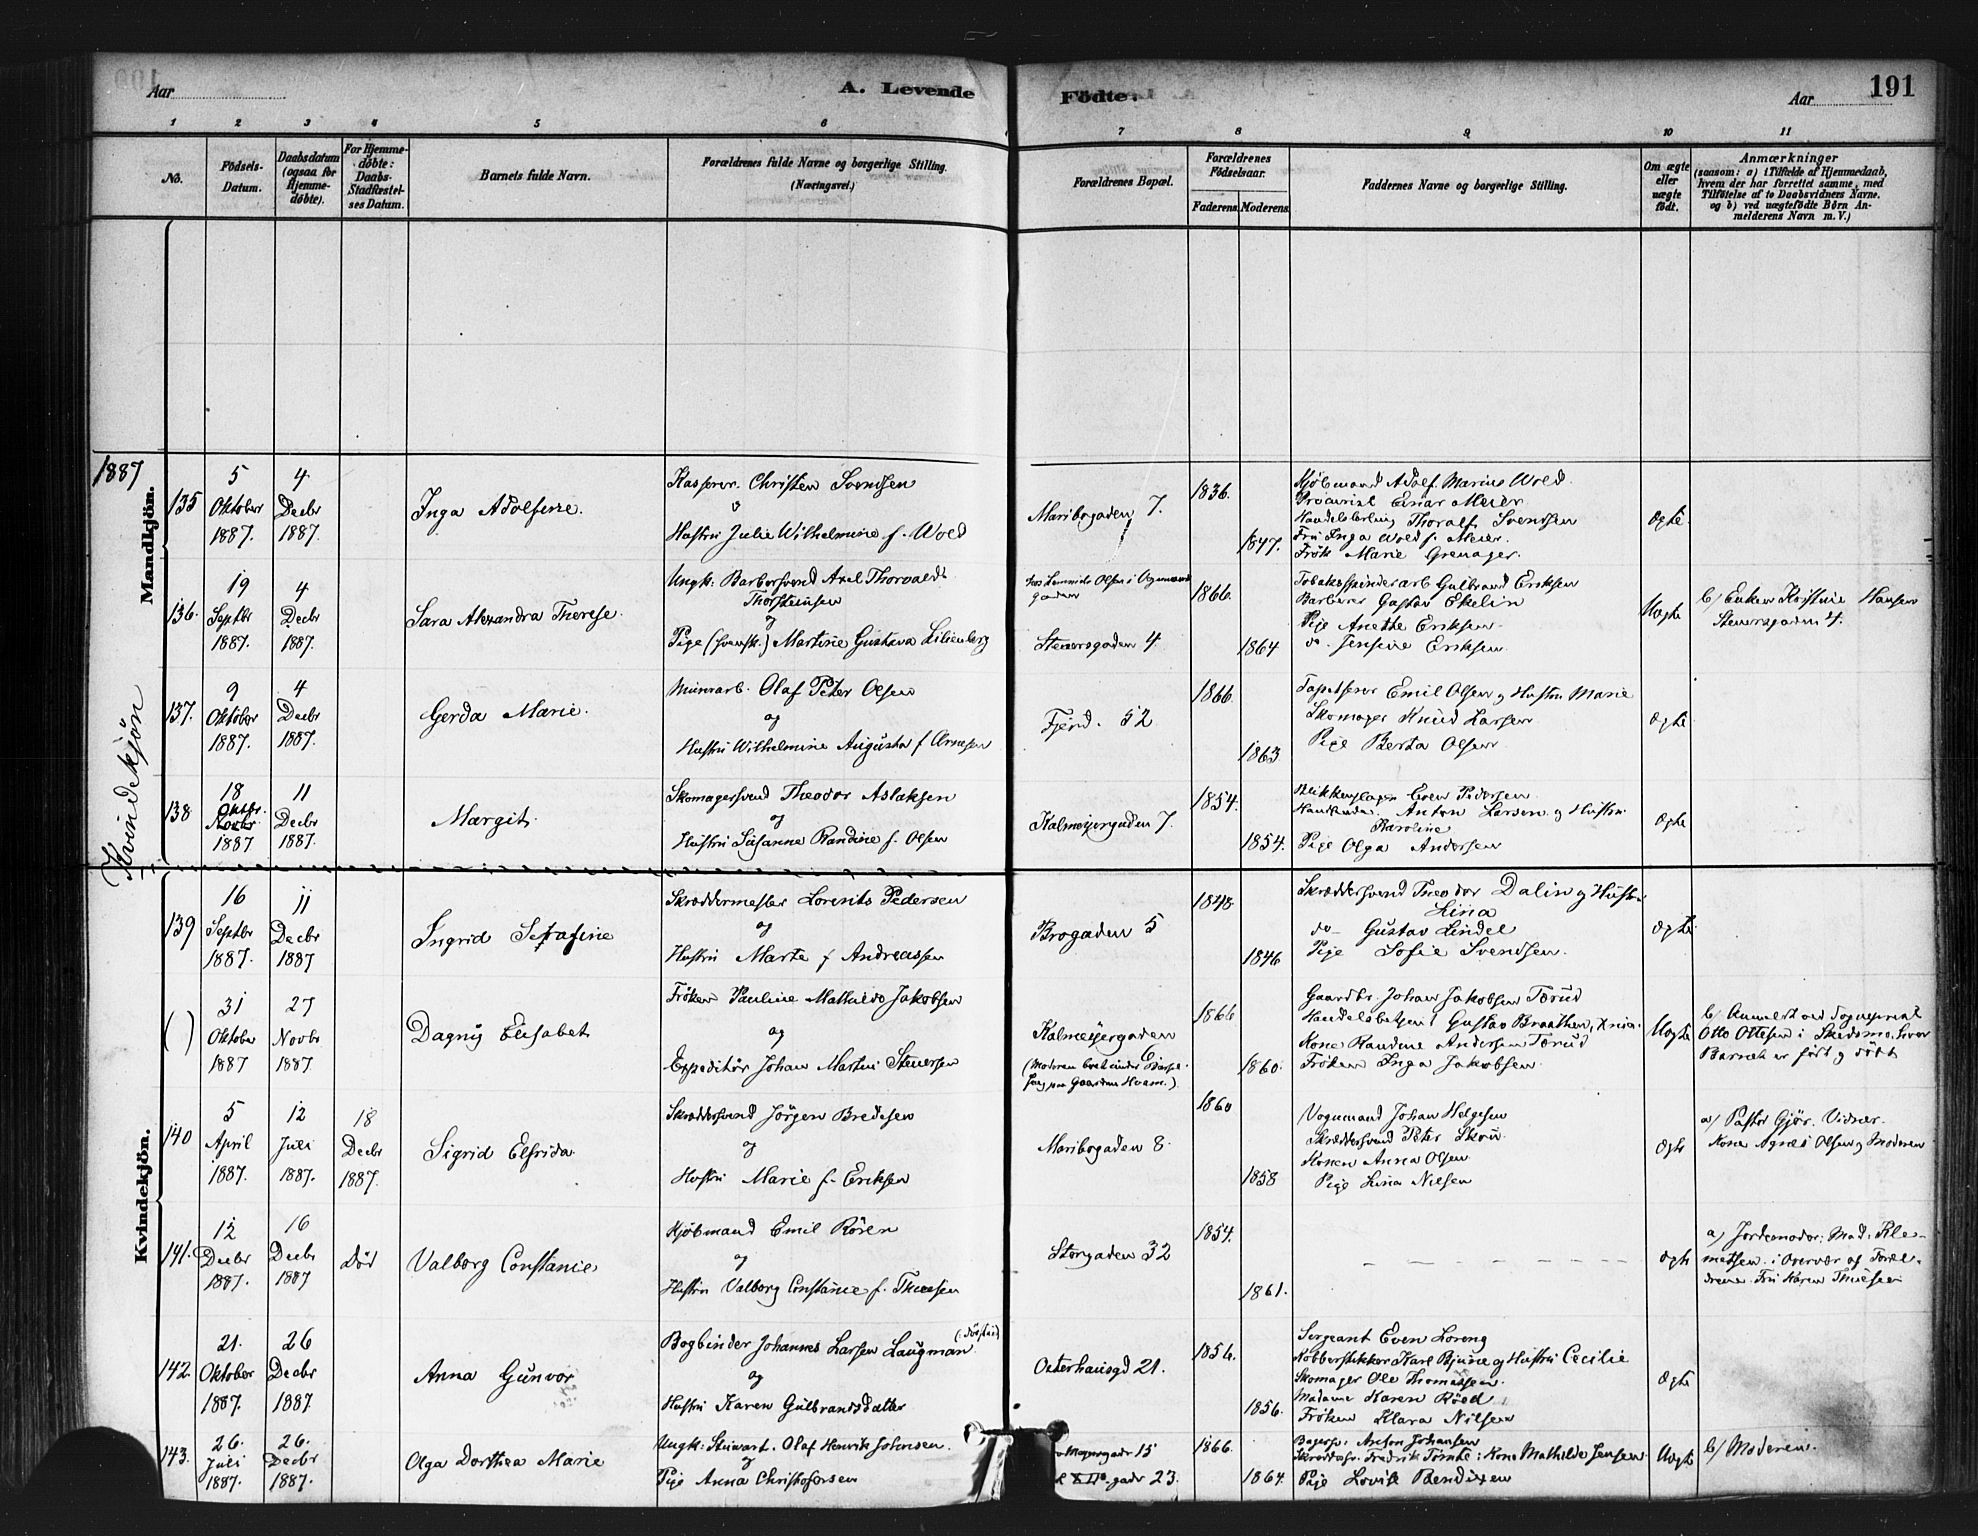 Aar
A. Levende
Födte.
Aar
191
1 2 3 4 5 6 7 8 9 10 11
No.
Födsels-
Datum.
Daabsdatum
(ogsaa for
Hjemme-
døbte).
For Hjemme-
døbte:
Daabs-
Stadfæstel-
ses Datum.
Barnets fulde Navn.
Forældrenes fulde Navne og borgerlige Stilling.
(Næringsvei.)
Forældrenes Bopæl.
Forældrenes
Födselsaar.
Faderens. Moderens.
Faddernes Navne og borgerlige Stilling.
Om ægte
eller
uægte
födt.
Anmærkninger
(saasom: a) i Tilfælde af Hjemmedaab,
hvem der har forrettet samme, med
Tilföielse af to Daabsvidners Navne.
og b) ved uægtefödte Börn An-
melderens Navn m. V.)
1887
Mandkjön.
Kvindekjøn
Kvindekjön.
135
5
Oktober
1887.
4
Decbr
1887.
Inga Adolfine.
Kasserer Christen Svendsen
o
Hustru Julie Wilhelmine f. Wold
Maribogaden 7.
1836.
1847.
Kjøbmand Adolf Marius Wold
Einar Meier
Thoralf Svendsen
Fru Inga Wold f. Meier.
Frøk Marie Grenager.
Ægte.
136.
19
Septbr
1887.
4
Decbr
1887.
Sara Alexandra Therese.
Ungk: Barbersvend Axel Thorvald
Thorsteinsen
og
Pige (svensk.) Martine Gustava Lilienberg
gaden
Stenersgaden 4.
1866.
1864
Tobaksspinderarb Gulbrand Eriksen
Barberer Gustav Ekelin
Pige Anethe Eriksen
do. Jensine Eriksen
Uægte
b/ Enken Kristine Hansen
Stenersgaden 4.
137.
9
Oktober
1887.
4
Decbr
1887.
Gerda Marie.
Murerarb. Olaf Peter Olsen
og
Hustru Wilhelmine Augusta f Arnesen
Fjerd. 52
1866.
1863
Tapetserer Emil Olsen og Hustru Marie
Skomager Knud Larsen
Pige Berta Olsen
Ægte
138
18
Oktbr.
Novbr
1887
11
Decbr
1887.
Margit.
Skomagersvend Theodor Aslaksen
og
Hustru Susanne Randine f. Olsen
Kalmeyergaden 7.
1854.
1854.
Blikkenslager Even Pedersen
Anton Larsen og Hustru
Karoline
Pige Olga Andersen
Ægte
139
16
Septbr
1887.
11
Decbr
1887
Ingrid Serafine
Skræddermester Lorents Pedersen
og
Hustru Marte f Andreassen
Brogaden 5
1848
1846
Skræddersvend Theodor Dalin og Hustru
Lina
do - Gustav Lindel
Pige Sofie Svendsen.
Ægte.
( )
31
Oktober
1887
27
Novbr
1887
Dagny Elisabet
Frøken Pauline Mathilde Jakobsen
og
Expeditør Johan Martin Stenersen
Kalmeyergaden
1866
1860.
Gaardbr. Johan Jakobsen Tærud
Handelsbetjent Gustav Braathen, Xnia.
Kone Randine Andersen Tærud
Frøken Inga Jakobsen
Uægte
b/ Anmeldt ved Sogneprest
Otto Ottesen i Skedsmo, hvor
Barnet er født og døbt
140
5
April
1887.
12
Juli
1887.
18
Decbr
1887.
Sigrid Elfrida
Skræddersvend Jörgen Bredesen
og
Hustru Marie f. Eriksen
Maribogaden 8.
1860
1858
Vognmand Johan Helgesen
Skræddersvend Peter Skou
Konen Anna Olsen
Pige Lina Nilsen
Ægte
a/ Pastor Gjør. Vidner.
Kone Agnes Olsen og Moderen
141.
12
Decbr
1887.
16
Decbr
1887
Död
Valborg Constance
Kjøbmand Emil Røren
og
Hustru Valborg Constance f. Thuesen
Storgaden 32
1854.
1861.
Ægte
a/ Jordemoder: Mad: Kle-
metsen i Overvær af Foræl-
drene. Fru Karen Thuesen
142.
21.
Oktober
1887.
26
Decbr
1887.
Anna Gunvor
Bogbinder Johannes Larsen Laugman
og
Hustru Karen Gulbrandsdatter
Osterhausgd 21.
1856.
1856.
Sergeant Even Loreng
Kobberstikker Karl Bjune og Hustru Cecilie
Skomager Ole Thomassen
Madame Karen Röed
Frøken Klara Nilsen
Ægte
143.
26.
Juli
1887.
26.
Decbr
1887.
Olga Dorthea Marie
Ungk: Stuwart. Olaf Henrik Johnsen.
og
Pige Anna Christofersen
15
gade 23.
1866.
1864.
Bagersv: Anton Johansen
Skræddersv. Fredrik Tömte: Kone Mathilde Jensen
Pige Lovise Bendixen
Uægte
b/ Moderen.